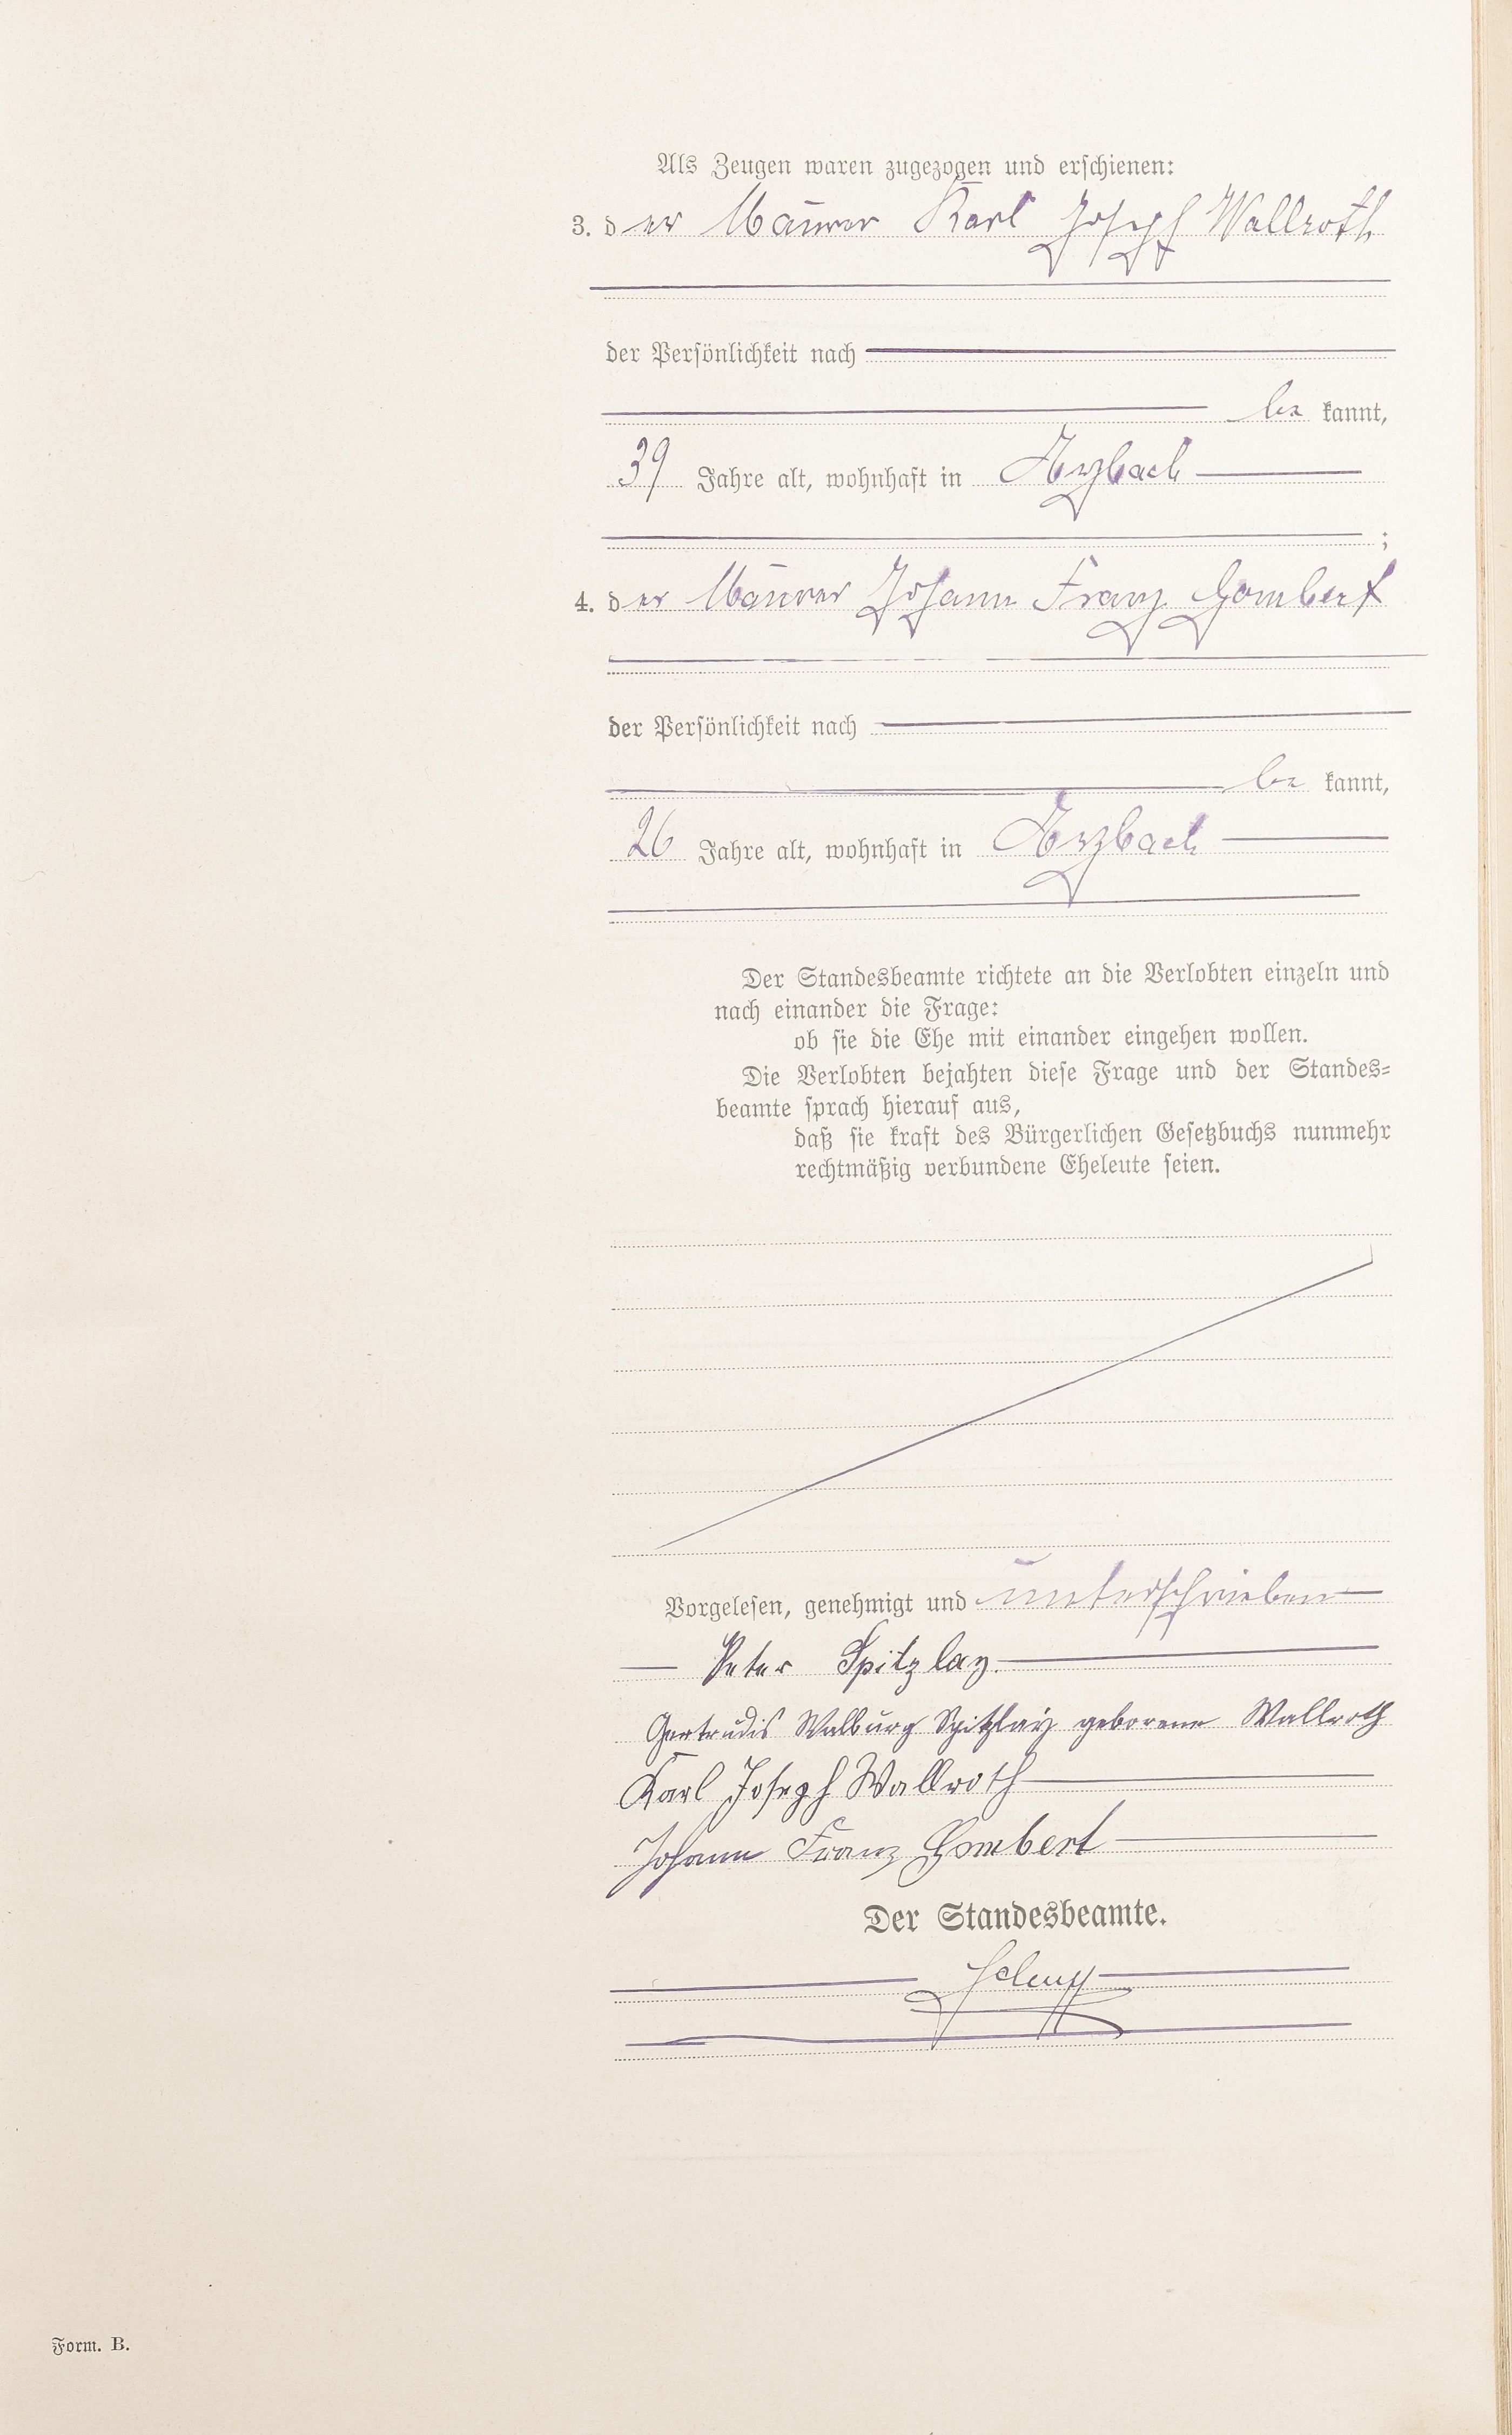 Als Zeugen waren zugezogen und erschienen:
3. der Maurer Karl Joseph Wallroth
der Persönlichkeit nach
be kannt,
39 Jahre alt, wohnhaft in Arzbach
;
4. der Maurer Johann Franz Gombert
der Persönlichkeit nach
be kannt,
26 Jahre alt, wohnhaft in Arzbach
Der Standesbeamte richtete an die Verlobten einzeln und
nach einander die Frage:
ob sie die Ehe mit einander eingehen wollen.
Die Verlobten bejahten diese Frage und der Standes-
beamte sprach hierauf aus,
daß sie kraft des Bürgerlichen Gesetzbuchs nunmehr
rechtmäßig verbundene Eheleute seien.
Vorgelesen, genehmigt und unterschrieben
Peter Spitzlay.
Gertrudis Walburg Spitzlay geborene Wallroth
Karl Joseph Wallroth
Johann Franz Gombert
Der Standesbeamte.
Form. B.